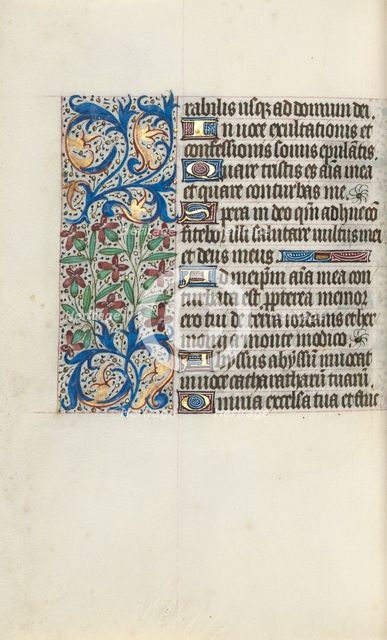 rabilis usq; ad domum dei.
In uoce exultationis et
confessionis sonus epulātis.
Quare tristis es aīa mea
et quare conturbas me.
Spera in deo qm̄ adhuc cō
fitebor illi salutare uultus mei
et deus meus.
Ad meipm̄ aīa mea con
turbata est ppterea memor
ero tui de terra iordanis et her
monij a monte modico.
Abyssus abyssū inuocat
in uoce catharatharū tuarū.
Omnia excelsa tua et fluc